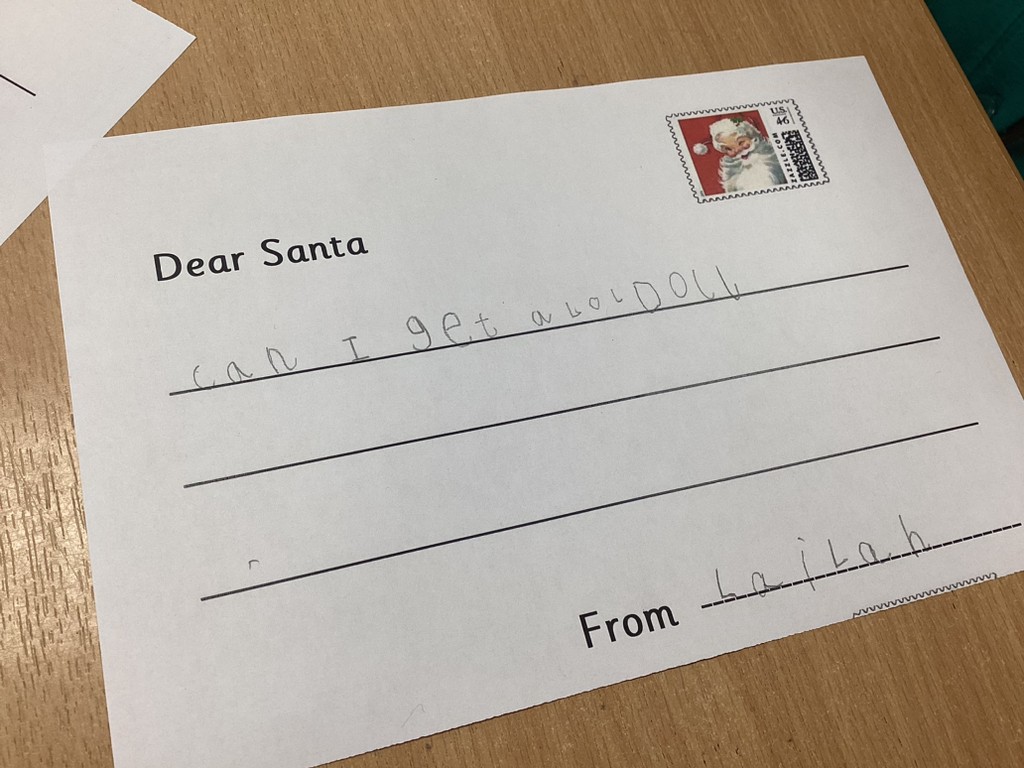 U.S.
46
ZAZZLE.COM
Dear Santa
can I get a LOL DOLL
From Lailah